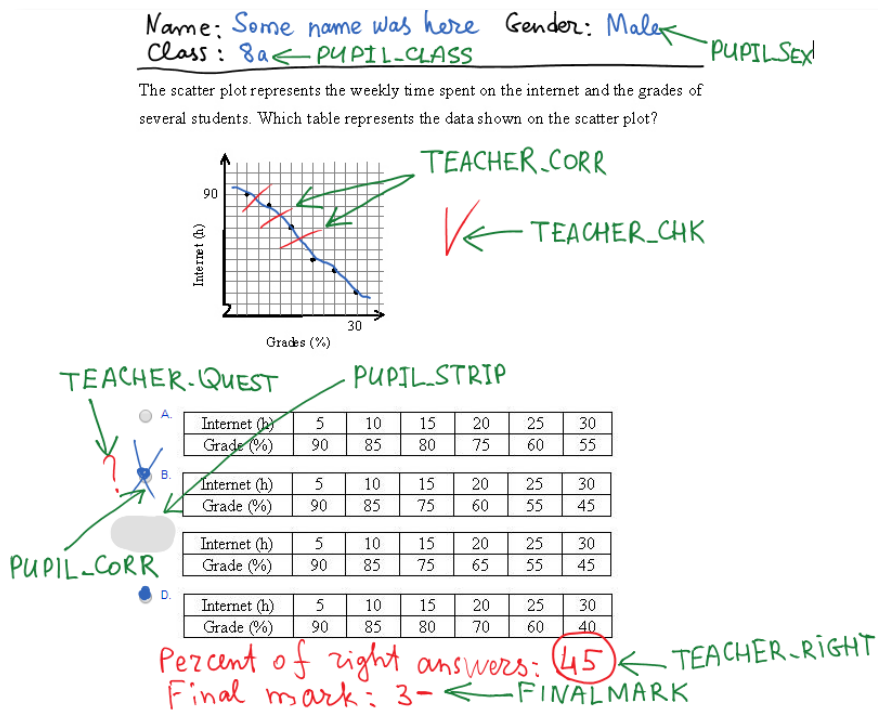 Name: Some name was here Gender: Male
PUPILSEX
Class: 8a PUPIL_CLASS
The scatter plot represents the weekly time spent on the internet and the grades of
several students. Which table represents the data shown on the scatter plot?
TEACHER_CORR
90
TEACHER_CHK
Internet (h)
30
Grades (%)
TEACHER_QUEST PUPIL_STRIP
A.
Internet (h) 5 10 15 20 25 30
Grade (%) 90 85 80 75 60 55
?
B.
Internet (h) 5 10 15 20 25 30
Grade (%) 90 85 75 60 55 45
PUPIL_CORR
Internet (h) 5 10 15 20 25 30
Grade (%) 90 85 75 65 55 45
D.
Internet (h) 5 10 15 20 25 30
Grade (%) 90 85 80 70 60 40
Percent of right answers: 45 TEACHER_RIGHT
Final mark: 3- FINALMARK